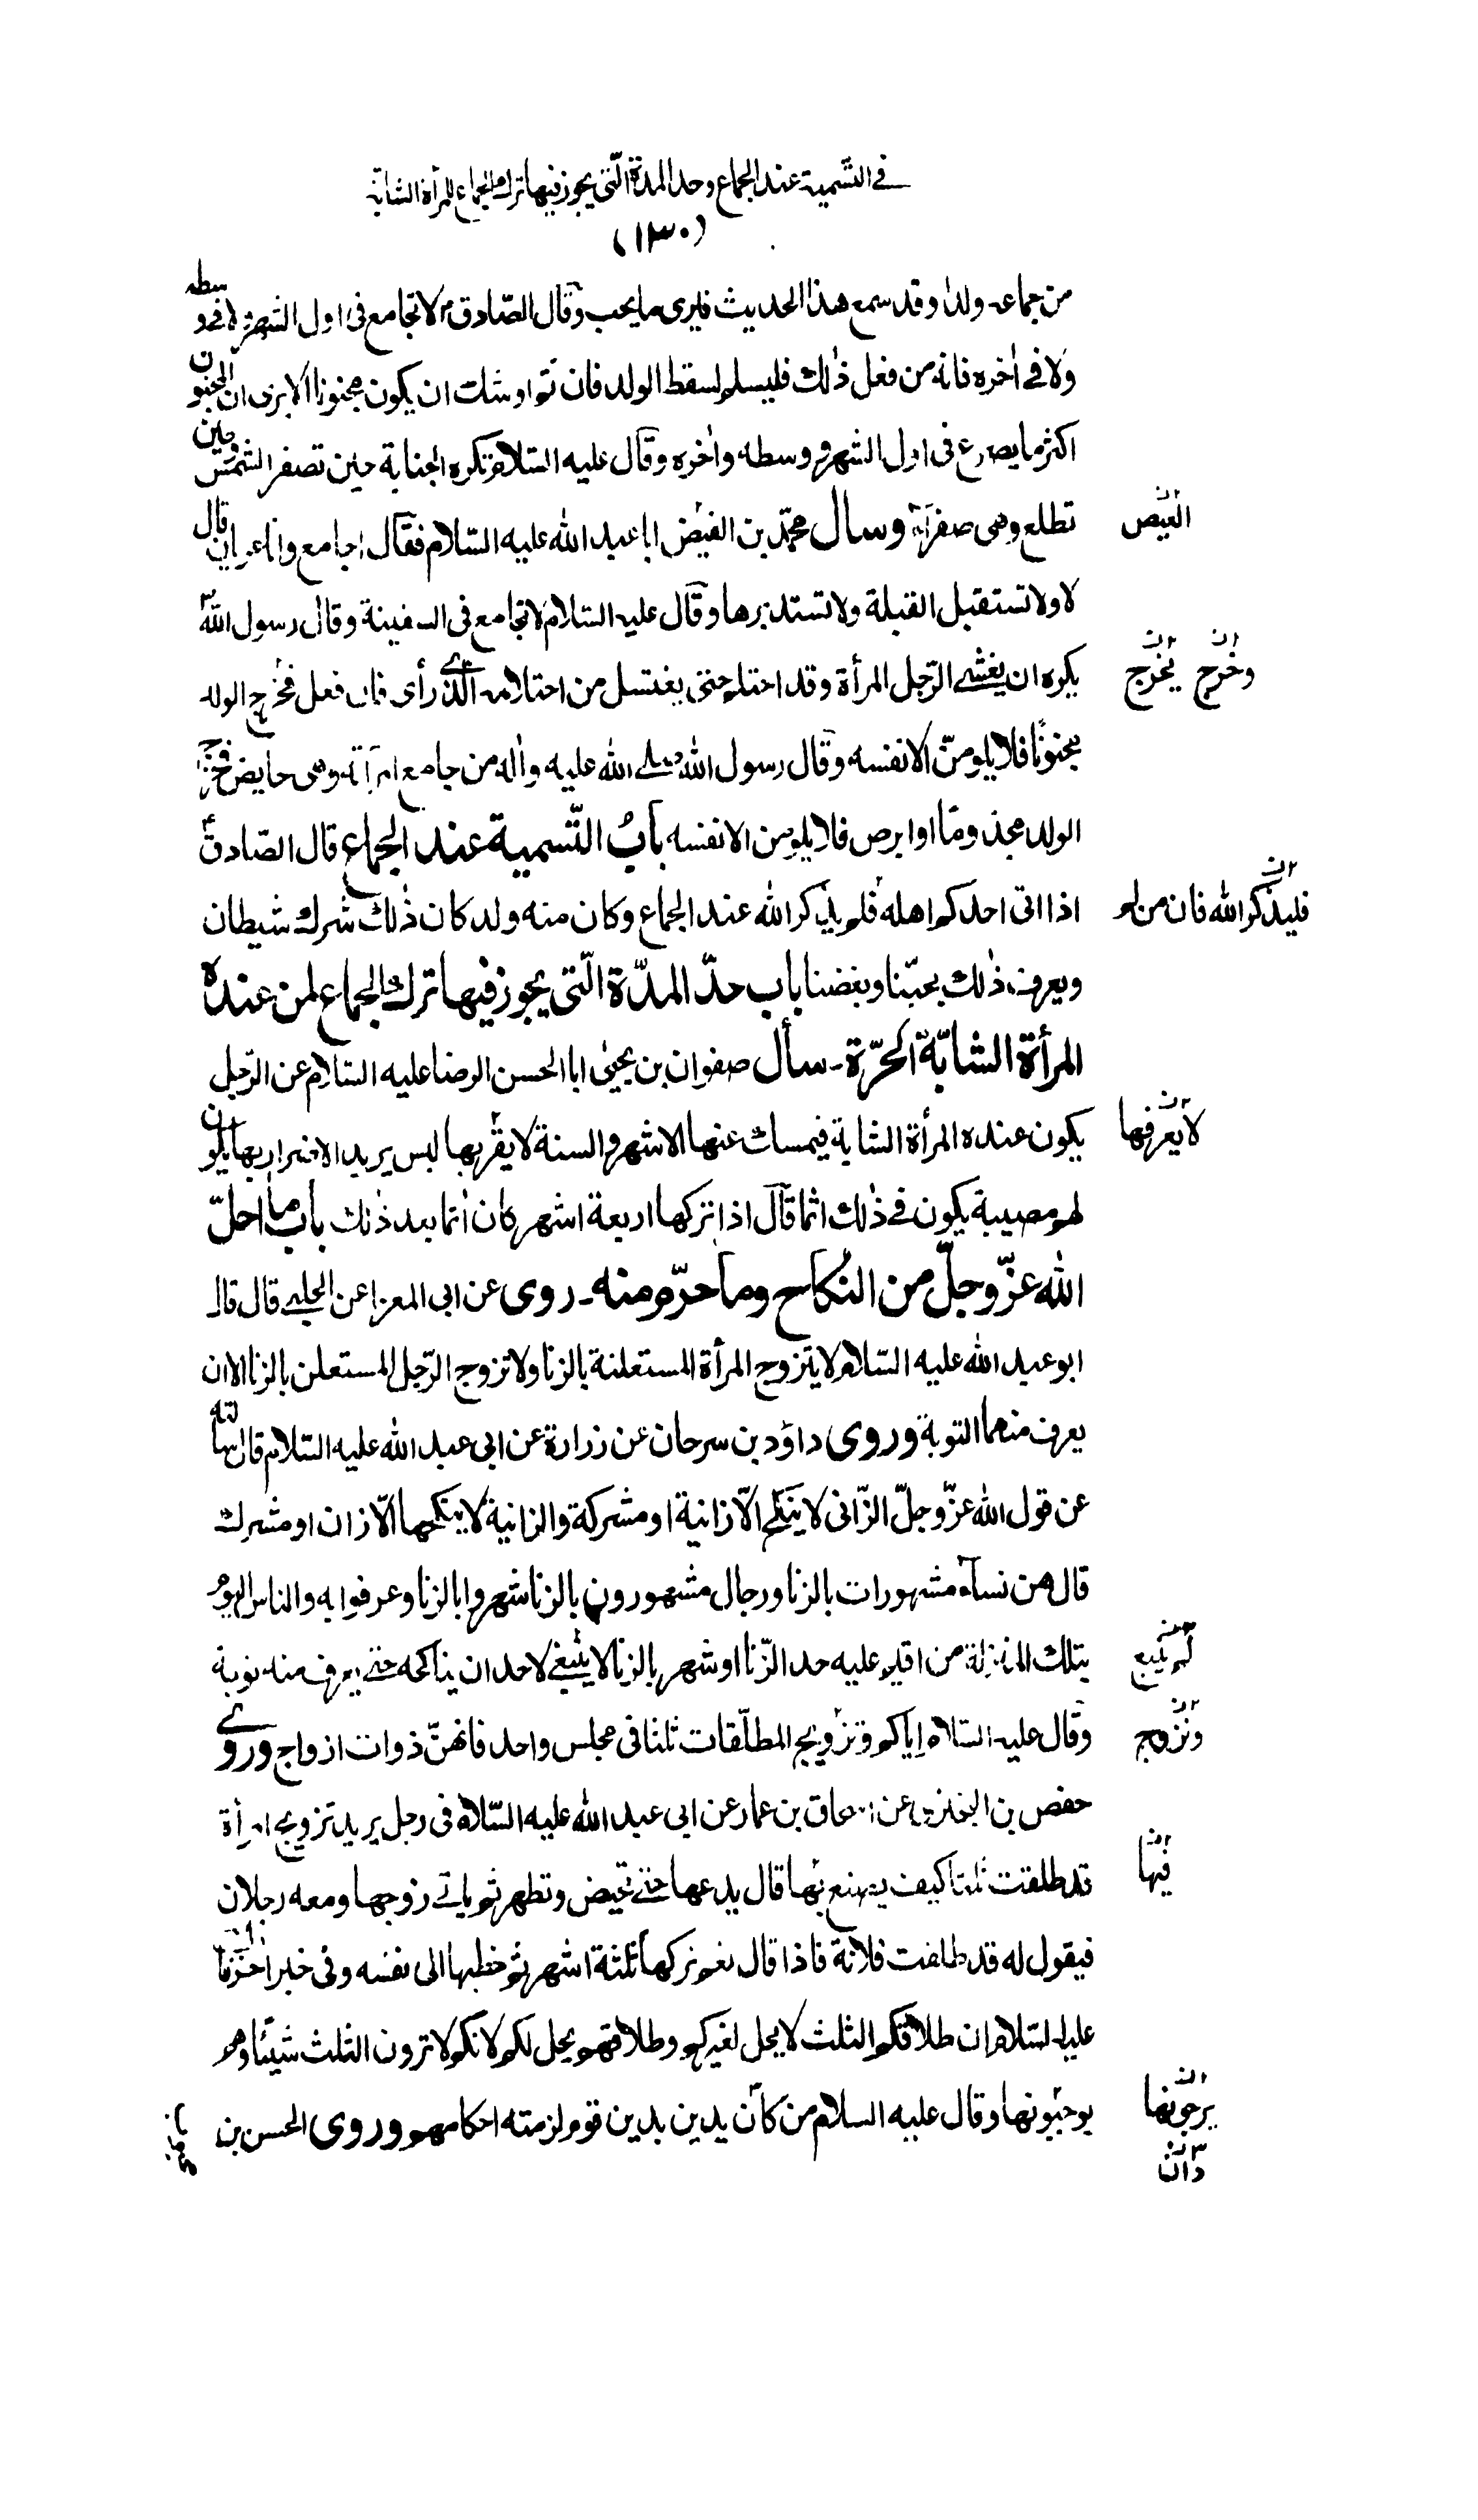 في التسمية عند الجماع وحد المدة التى يجوز فيها ترك الجماع للمرأة الشابة
(١٣٠)
من جماعه ولدا وقد سمع هذا الحديث فليرى ما يحب وقال الصادقؑ لا تجامع فى اول الشهر ولا فى وسطه
ولا في اخره فانه من فعل ذلك فليسلم لسقط الولد فان تم اوشك ان يكون مجنونا الا ترى ان المجنون
اكثر ما يصرع فى اول الشهر ووسطه واخره وقال عليه السلام تكره الجنابة حين تصفر الشمس وحين
تطلع وهى صفراء وسال محمد بن الفيض ابا عبد الله عليه السلام فقال اجامع وانا عريان قال
العيص
لا ولا تستقبل القبلة ولا تستدبرها وقال عليه السلام لا تجامع فى السفينة وقال رسول الله
يكره ان يغشى الرجل المرأة وقد احتلم حتى يغتسل من احتلامه الذى رأى فان فعل فخرج الولد
يخرج
وخرج
مجنونًا فلا يلومن الا نفسه وقال رسول الله صلى الله عليه واله من جامع امرأته وهى حايض فخرج
الولد مجذوما او ابرص فلا يلومن الا نفسه بابُ التسمية عند الجماع قال الصادقؑ
اذا اتى احدكم اهله فلم يذكر الله عند الجماع وكان منه ولد كان ذلك شرك شيطان
فليذكر الله فان من لم
ويعرف ذلك بحبّنا وبغضنا باب حدّ المدّة الّتى يجوز فيها ترك الجماع لمن عنده
المرأة الشابّة الحرّة ـ سأل صفوان بن يحيى ابا الحسن الرضا عليه السلام عن الرجل
يكون عنده المرأة الشابة فيمسك عنها الاشهر والسنة لا يقربها ليس يريد الاضرار بها يكون
لا يعرفها
لهم مصيبة يكون في ذلك اثما قال اذا تركها اربعة اشهر كان اثما بعد ذلك باب ما احلّ
الله عزّ وجلّ من النكاح وما حرّم منه ـ روى عن ابى المعزا عن الحلبى قال قال
ابو عبد الله عليه السلام لا يتزوج المرأة المستعلنة بالزنا ولا تزوج الرّجل المستعلن بالزنا الا ان
يعرف منهما التوبة وروى داؤد بن سرحان عن زرارة عن ابى عبد الله عليه السلام قال سالته
عن قول الله عزّ وجلّ الزّانى لا ينكح الّا زانية او مشركة والزانية لا ينكحها الّا زان او مشرك
قال هن نساء مشهورات بالزنا ورجال مشهورون بالزنا شهروا بالزنا وعرفوا به والناس اليوم
بتلك المنزلة من اقيم عليه حد الزّنا او شهر بالزنا لا ينبغى لاحد ان يناكحه حتى يعرف منه توبة
لم ينبغ
وقال عليه السلام إياكم وتزويج المطلّقات ثلثا فى مجلس واحد فانهنّ ذوات ازواج وروى
وتزوج
حفص بن البخترى عن اسحاق بن عمار عن ابى عبد الله عليه السّلام فى رجل يريد تزويج امرأة
قد طلقت ثلثا كيف يصنع بها قال يدعها حتى تحيض وتطهر ثم ياتى زوجها ومعه رجلان
فيها
فيقول له قد طلقت فلانة فاذا قال نعم تركها ثلثة اشهر ثم خطبها الى نفسه وفى خبر اخر قال
عليه السلام ان طلاقكم الثلث لا يحل لغيركم وطلاقهم يحل لكم لانكم لا ترون الثلث شيئا وهم
يوجبونها وقال عليه السلام من كان يدين بدين قوم لزمته احكامهم وروى الحسن بن
يرجونها
دان